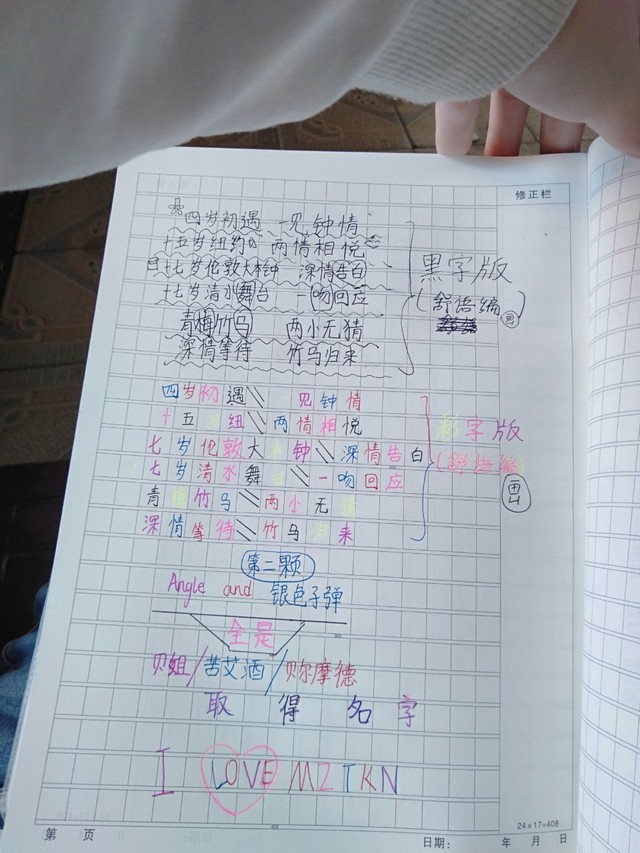 修正栏
四岁初遇 一见钟情
十五岁纽约 两情相悦
十七岁伦敦大本钟 深情告白
十七岁清水舞台 一吻回应
青梅竹马 两小无猜
深情等待 竹马归来
黑字版
(舒语编)
四岁初遇\\ 见钟情
十五 纽\\两情相悦
七岁伦敦大 钟\\深情告白
七岁清水舞台\\一吻回应
青梅竹马\\两小无猜
深情等待\\竹马归来
彩字版
(舒语编)
第二颗
Angle and 银色子弹
全是
贝姐/苦艾酒/贝尔摩德
取得名字
I LOVE MZTKN
24×17=408
第 页 日期: 年 月 日